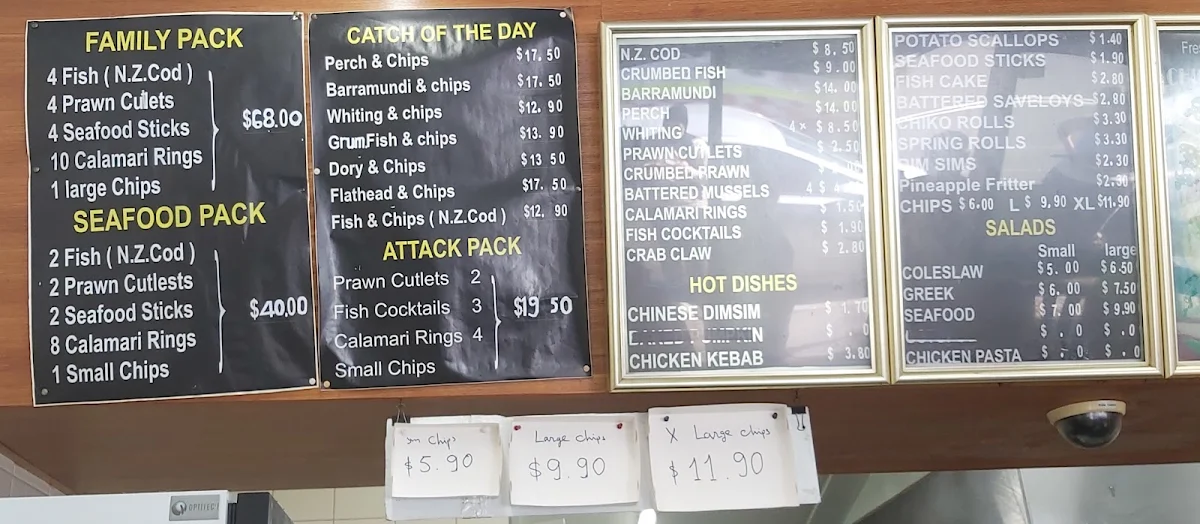 FAMILY PACK
4 Fish ( N.Z.Cod )
4 Prawn Cutlets
4 Seafood Sticks
10 Calamari Rings
1 large Chips
$68.00
SEAFOOD PACK
2 Fish ( N.Z.Cod )
2 Prawn Cutlests
2 Seafood Sticks
8 Calamari Rings
1 Small Chips
$40.00
CATCH OF THE DAY
Perch & Chips $17. 50
Barramundi & chips $17. 50
Whiting & chips $12. 90
GrumFish & chips $13. 90
Dory & Chips $13 50
Flathead & Chips $17. 50
Fish & Chips ( N.Z.Cod ) $12. 90
ATTACK PACK
Prawn Cutlets 2
Fish Cocktails 3
Calamari Rings 4
Small Chips
$19 50
N.Z. COD $ 8. 50
CRUMBED FISH $ 9. 00
BARRAMUNDI $ 14. 00
PERCH $ 14. 00
WHITING 4x $ 8.50
PRAWN CUTLETS $ 2.50
CRUMBED PRAWN
BATTERED MUSSELS 4 $
CALAMARI RINGS $ 1.50
FISH COCKTAILS $ 1.90
CRAB CLAW $ 2.80
HOT DISHES
CHINESE DIMSIM $ 1.70
CHICKEN KEBAB $ 3.80
POTATO SCALLOPS $ 1.40
SEAFOOD STICKS $ 1.90
FISH CAKE $ 2.80
BATTERED SAVELOYS $ 2.80
CHIKO ROLLS $ 3.30
SPRING ROLLS $ 3.30
DIM SIMS $ 2.30
Pineapple Fritter $ 2.50
CHIPS $ 6.00 L $ 9.90 XL $11.90
SALADS
Small large
COLESLAW $ 5. 00 $ 6.50
GREEK $ 6. 00 $ 7.50
SEAFOOD $ 7. 00 $ 9.90
$ . 0 $ . 0
CHICKEN PASTA $ . 0 $ . 0
Sm chips
$5.90
Large chips
$9.90
X Large chips
$11.90